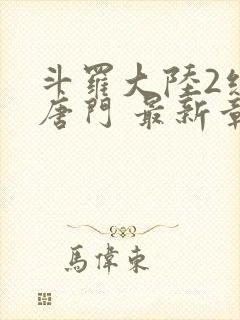 斗羅大陸2絕
唐門 最新章
馬偉東